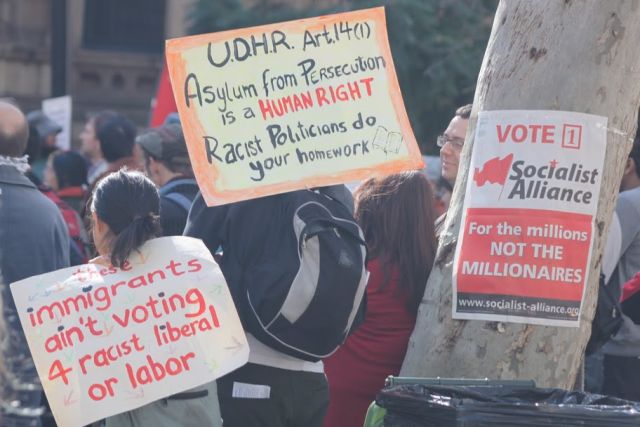 U.D.H.R. Art.14(1)
Asylum from PERSECUTION
is a HUMAN RIGHT
Racist Politicians do
your homework
these
immigrants
ain't voting
4 racist liberal
or labor
VOTE 1
Socialist
Alliance
For the millions
NOT THE
MILLIONAIRES
www.socialist-alliance.org